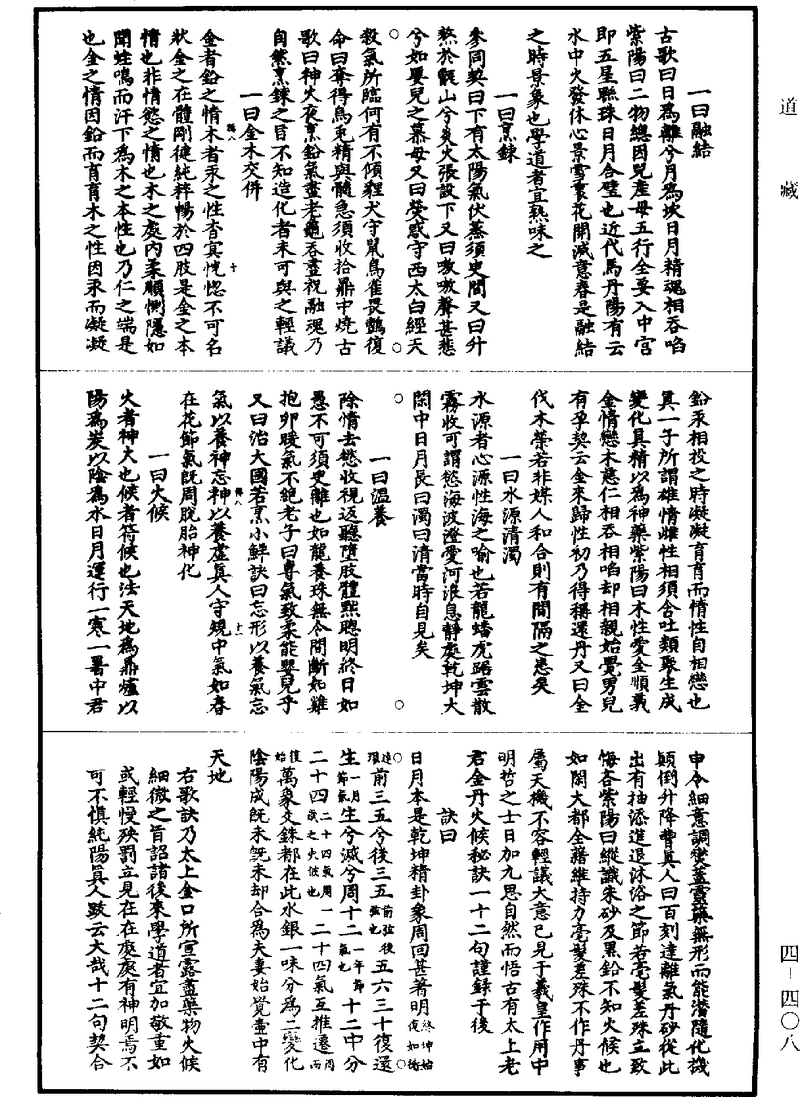 道藏
一曰融結
古歌曰日為離兮月為坎日月精魂相吞啗
紫陽曰二物總因兒產母五行全要入中宮
即五星聯珠日月合璧也近代馬丹陽有云
水中火發休心景雪裏花開滅意春是融結
之時景象也學道者宜熟味之
一曰烹鍊
參同契曰下有太陽氣伏蒸須臾間又曰升
熬於甑山兮炎火張設下又曰嗷嗷聲甚悲
兮如嬰兒之慕母又曰熒惑守西太白經天
殺氣所臨何有不傾貍犬守鼠鳥雀畏鸇復
命曰奪得烏兔精與髓急須收拾鼎中燒古
歌曰神火夜烹鉛氣盡老龜吞盡祝融魂乃
自然烹鍊之旨不知造化者未可與之輕議
一曰金木交併
金者鉛之情木者汞之性杳冥恍惚不可名
狀金之在體剛健純粹暢於四肢是金之本
情也非情慾之情也木之處內柔順惻隱如
聞蛙鳴而汗下為木之本性也乃仁之端是
也金之情因鉛而育育木之性因汞而凝凝
鉛汞相投之時凝凝育育而情性自相戀也
其一子所謂雄情雌性相須含吐類聚生成
變化其精以為神藥紫陽曰木性愛金順義
金情戀木慈仁相吞相啗却相親始覺男兒
有孕契云金來歸性初乃得稱還丹又曰金
伐木榮若非媒人和合則有間隔之患矣
一曰水源清濁
水源者心源性海之喻也若龍蟠虎踞雲散
霧收可謂慾海波澄愛河浪息靜裏乾坤大
閑中日月長曰濁曰清當時自見矣
一曰溫養
除情去慾收視返聽墮肢體黜聰明終日如
愚不可須臾離也如龍養珠無令間斷如雞
抱卵暖氣不絕老子曰專氣致柔能嬰兒乎
又曰治大國若烹小鮮訣曰忘形以養氣忘
氣以養神忘神以養虛真人守規中氣如春
在花節氣既周脫胎神化
一曰火候
火者神火也候者符候也法天地為鼎爐以
陽為炭以陰為水日月運行一寒一暑中君
申令細意調燮蓋靈藥無形而能潛隨化機
顛倒升降曹真人曰百刻達離氣丹砂從此
出有抽添進退沐浴之節若毫髮差殊立致
悔吝紫陽曰縱識朱砂及黑鉛不知火候也
如閑大都全藉維持力毫髮差殊不作丹事
屬天機不容輕議大意已見于羲皇作用中
明哲之士日加九思自然而悟古有太上老
君金丹火候秘訣一十二句謹錄于後
訣曰
日月本是乾坤精卦象周回甚著明
前三五兮後三五五六三十復還
生生兮滅兮周十二十二中分
二十四二十四氣互推遷
萬象文銖都在此水銀一味分為二變化
陰陽成既未既未却合為夫妻始覺壺中有
天地
右歌訣乃太上金口所宣露盡藥物火候
細微之旨詔諸後來學道者宜加敬重如
或輕慢殃罰立見在在處處有神明焉不
可不慎純陽真人跋云大哉十二句契合
四-四〇八